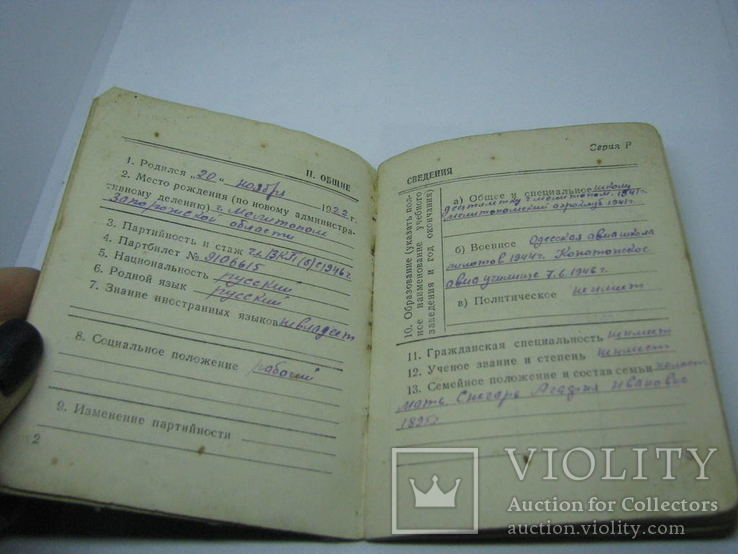 II. ОБЩИЕ
1. Родился „20" ноября 1922 г.
2. Место рождения (по новому администра-
тивному делению) г. Мелитополь
Запорожской области
3. Партийность и стаж чл. ВКП(б) с 1946 г.
4. Партбилет № 9106615
5. Национальность русский
6. Родной язык русский
7. Знание иностранных языков не владеет
8. Социальное положение рабочий
9. Изменение партийности
2
Серия Р
СВЕДЕНИЯ
10. Образование (указать пол-
ное наименование учебного
заведения и год окончания)
а) Общее и специальное школу
десятилетку г. Мелитополь 1941 г.
Мелитопольский аэроклуб 1941 г.
б) Военное Одесская авиашкола
пилотов 1944 г. Конотопское
авиаучилище 7.6.1946 г.
в) Политическое не имеет
11. Гражданская специальность не имеет
12. Ученое звание и степень не имеет
13. Семейное положение и состав семьи холост
мать Агафья Ивановна
1895
VIOLITY
Auction for Collectors
auction.violity.com